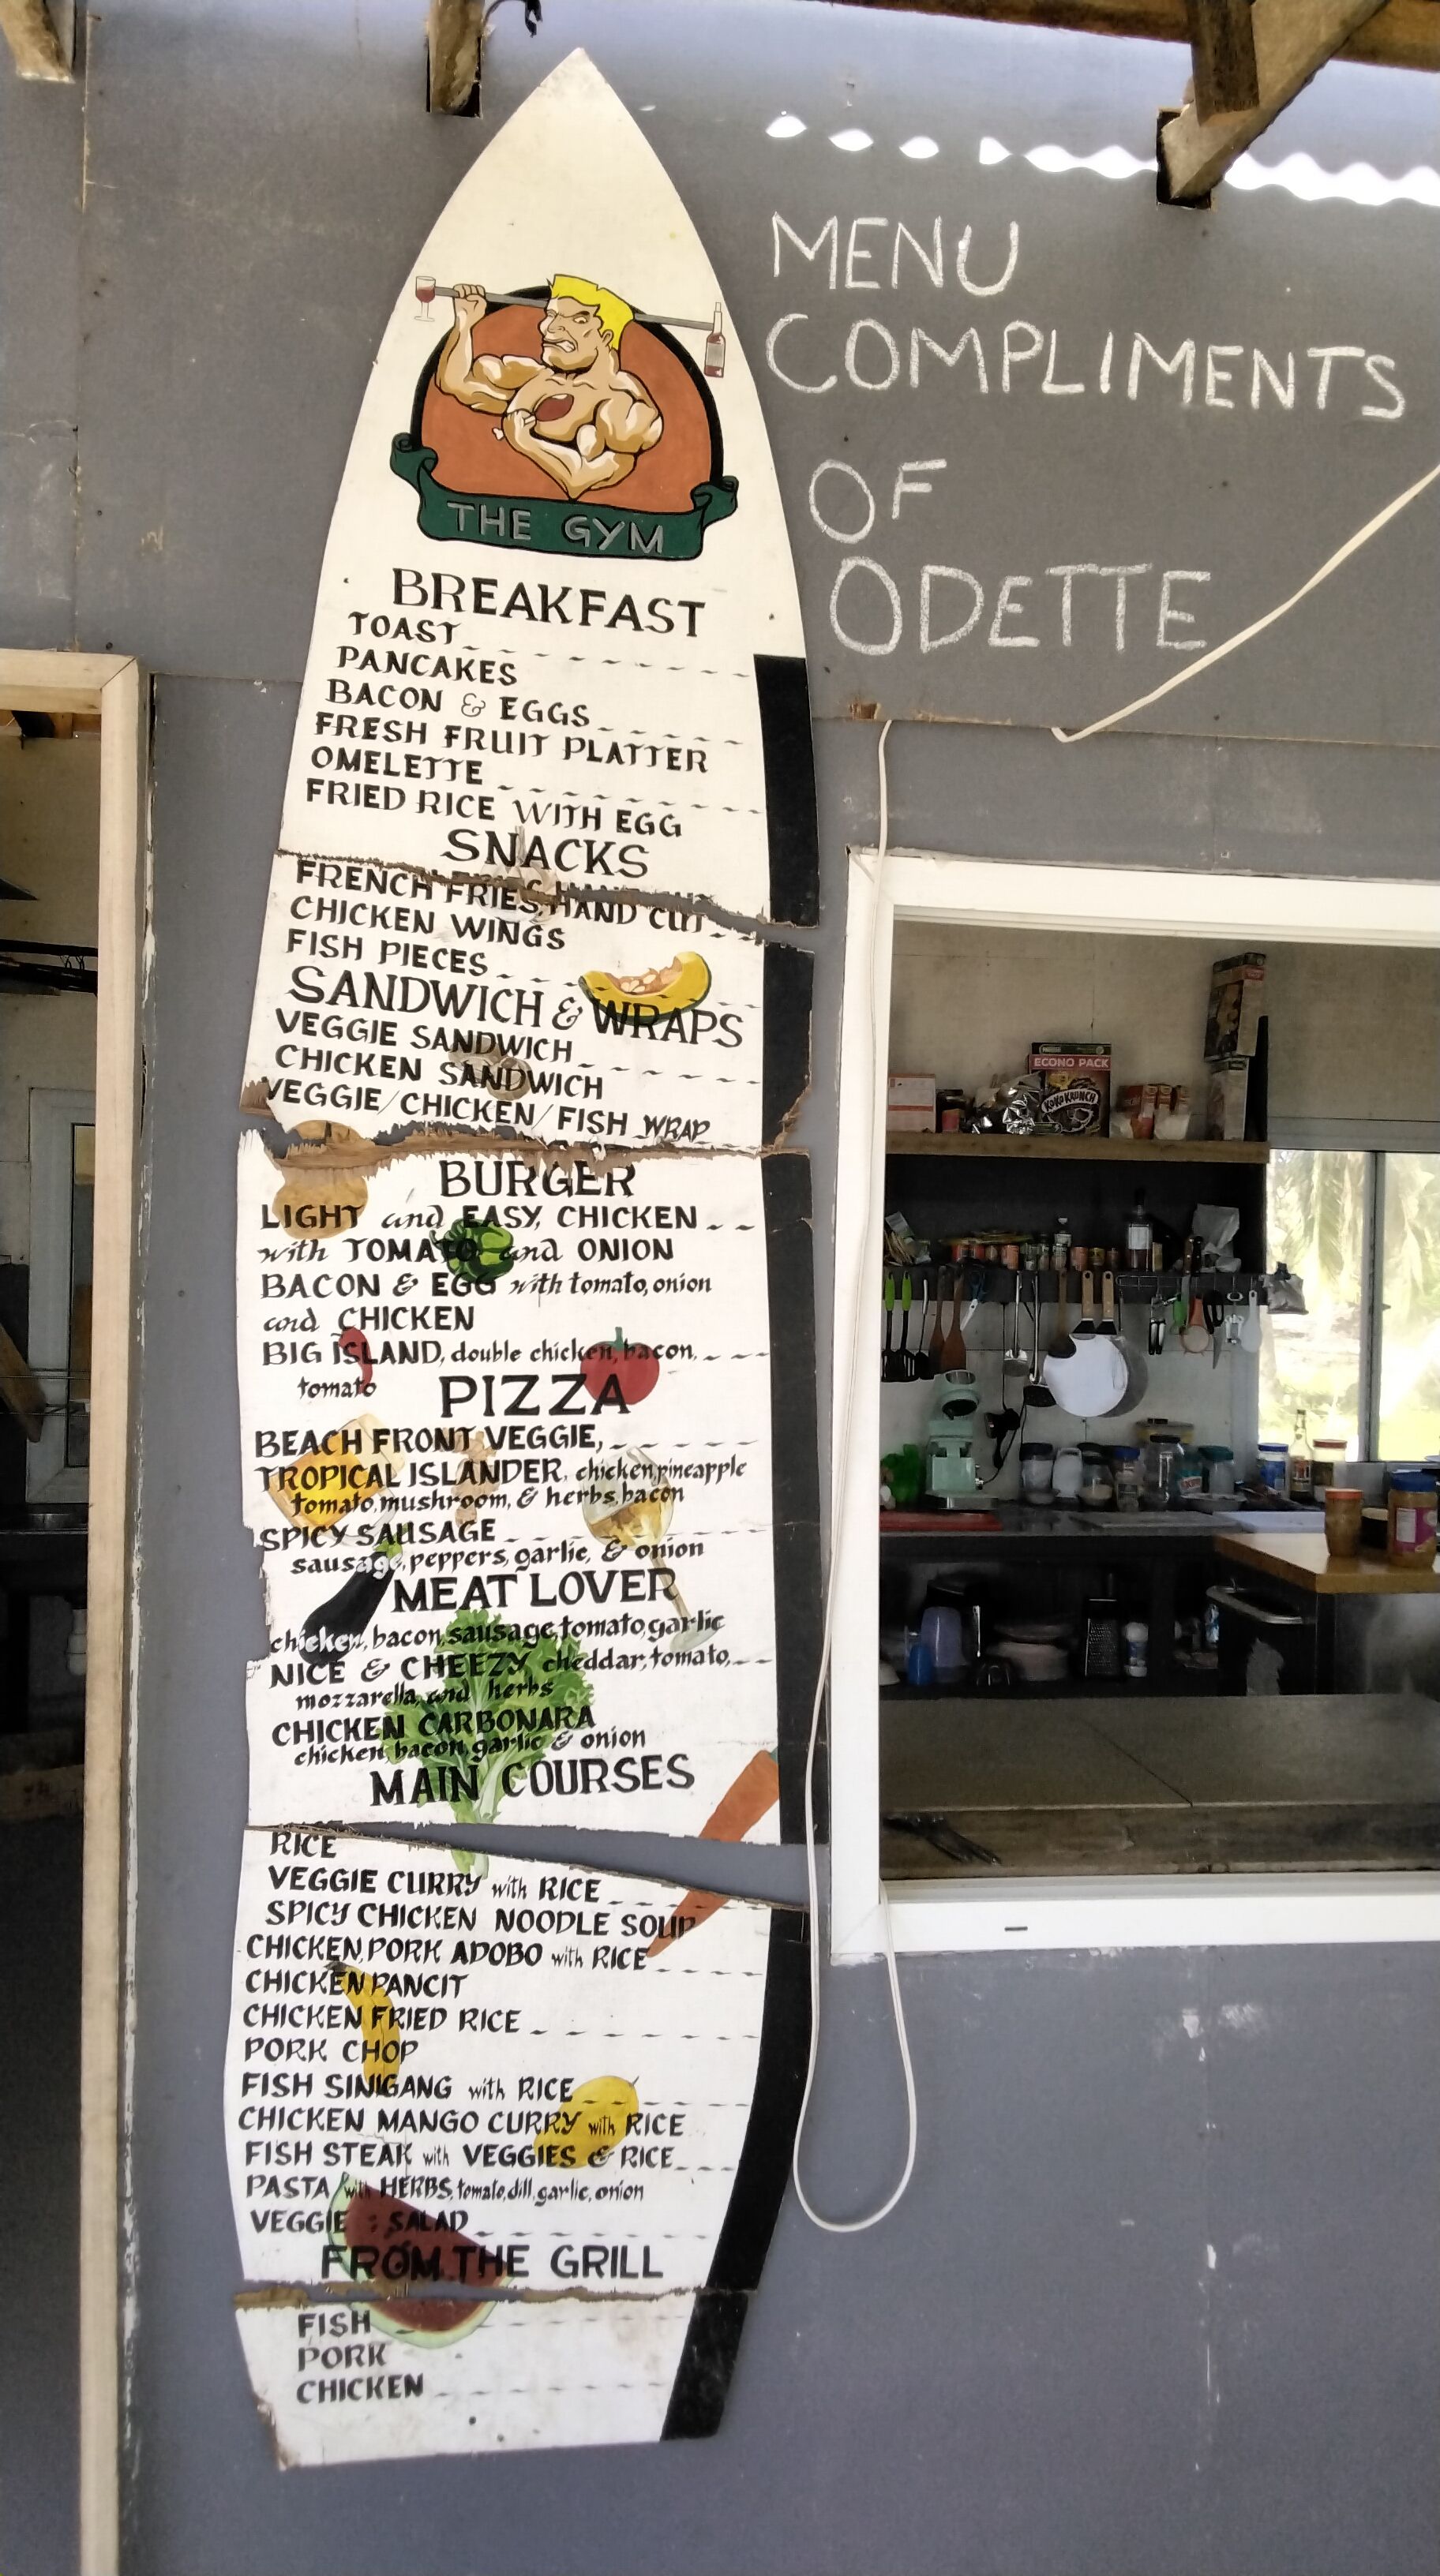 MENU
COMPLIMENTS
OF
ODETTE
THE GYM
BREAKFAST
TOAST
PANCAKES
BACON & EGGS
FRESH FRUIT PLATTER
OMELETTE
FRIED RICE WITH EGG
SNACKS
FRENCH FRIES, HAND CUT
CHICKEN WINGS
FISH PIECES
SANDWICH & WRAPS
VEGGIE SANDWICH
CHICKEN SANDWICH
VEGGIE/CHICKEN/FISH WRAP
BURGER
LIGHT and EASY, CHICKEN
with TOMATO and ONION
BACON & EGG with tomato, onion
and CHICKEN
BIG ISLAND, double chicken, bacon,
tomato
PIZZA
BEACH FRONT VEGGIE,
TROPICAL ISLANDER, chicken, pineapple
tomato, mushroom, & herbs, bacon
SPICY SAUSAGE
sausage, peppers, garlic, & onion
MEAT LOVER
chicken, bacon, sausage, tomato, garlic
NICE & CHEEZY cheddar, tomato,
mozzarella, and herbs
CHICKEN CARBONARA
chicken, bacon, garlic & onion
MAIN COURSES
RICE
VEGGIE CURRY with RICE
SPICY CHICKEN NOODLE SOUP
CHICKEN, PORK ADOBO with RICE
CHICKEN PANCIT
CHICKEN FRIED RICE
PORK CHOP
FISH SINIGANG with RICE
CHICKEN MANGO CURRY with RICE
FISH STEAK with VEGGIES & RICE
PASTA with HERBS, tomato, dill, garlic, onion
VEGGIE : SALAD
FROM THE GRILL
FISH
PORK
CHICKEN
ECONO PACK
KOKO KRUNCH